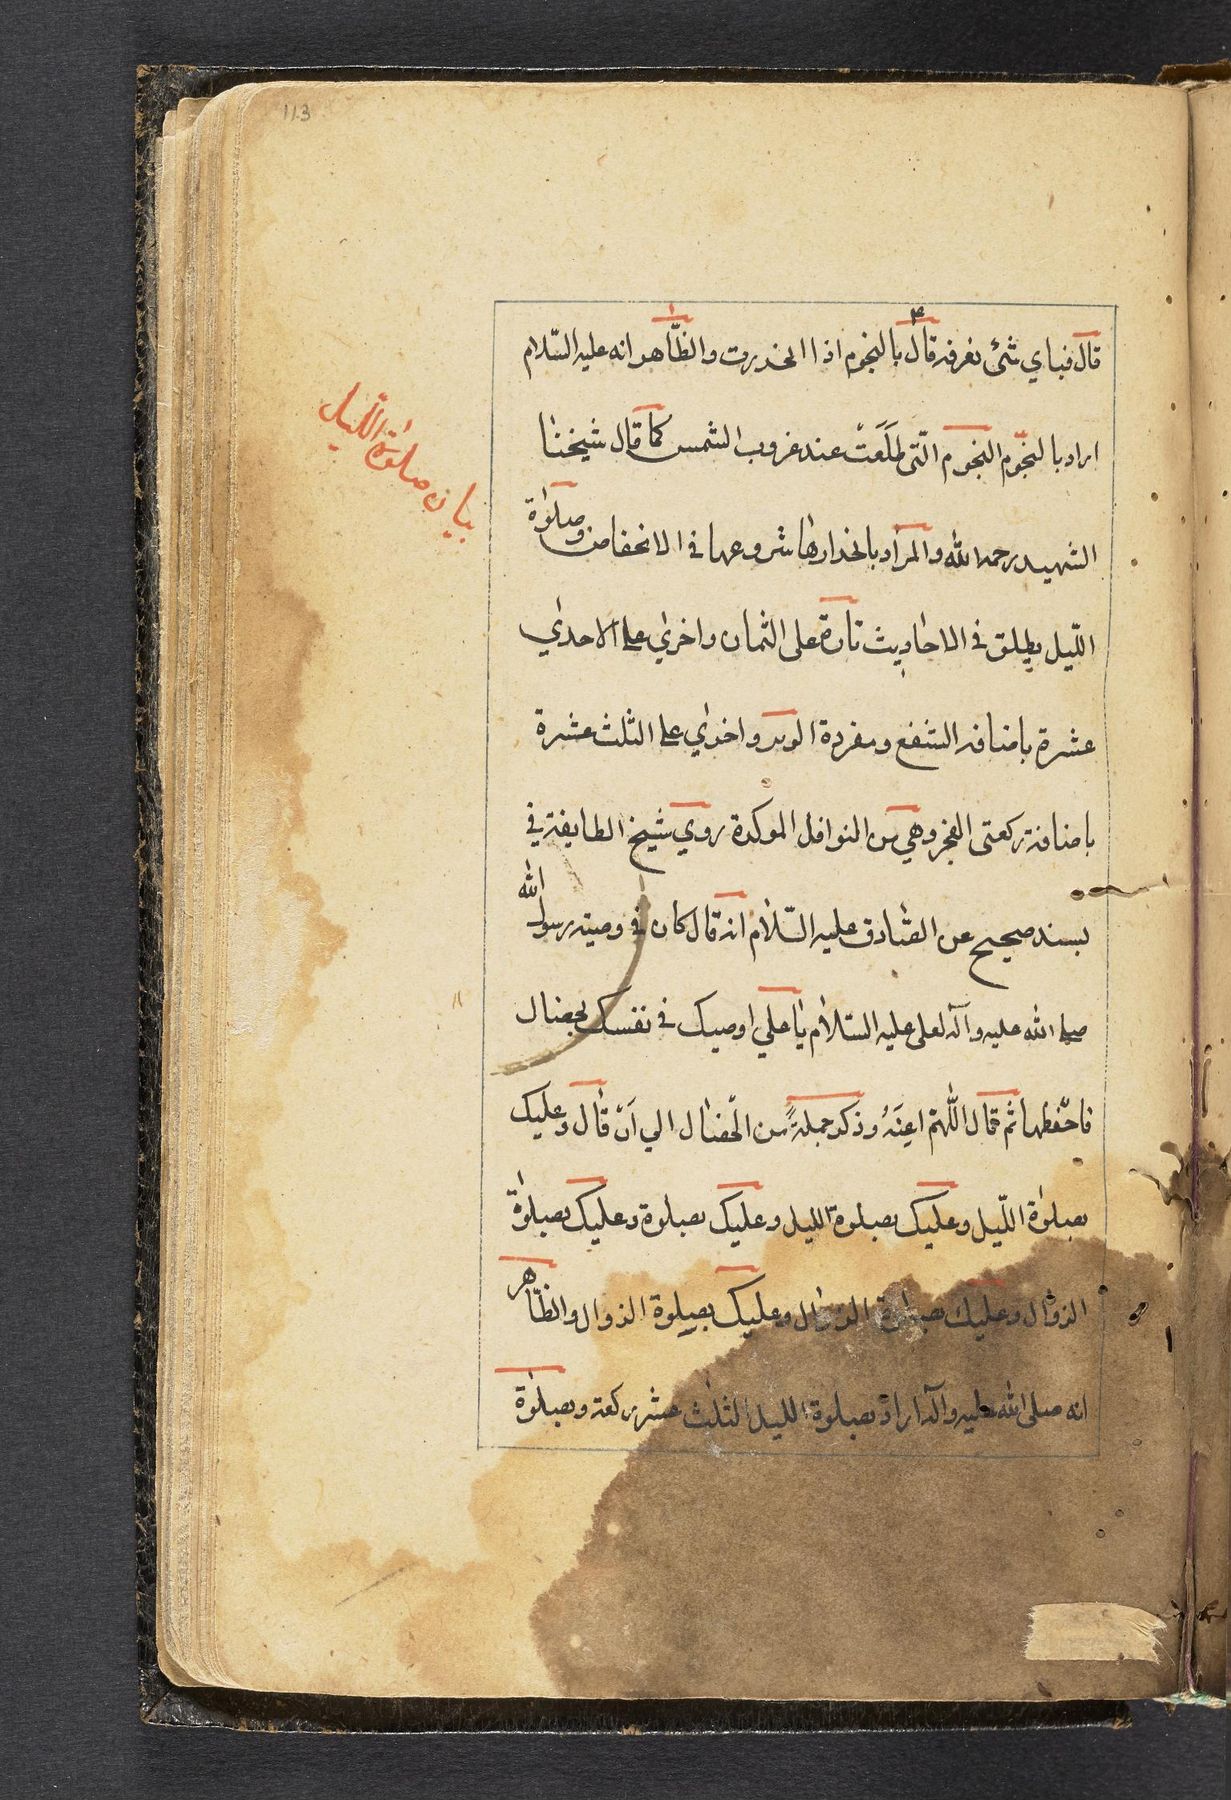 113
قال فباي شئ نعرفه قال بالنجوم اذا انحدرت والظّاهر انه عليه السّلام
اراد بالنجوم النجوم الّتى طَلَعَتْ عند غروب الشمس كما قال شيخنا
الشهيد رحمه الله والمراد بانحدارها شروعها فى الانخفاض وصلوٰة
اللّيل يطلق فى الاحاديث تارة على الثمان واخرٰي على الاحدٰي
عشرة باضافه الشفع ومفردة الوتر واخرٰي على الثلث عشرة
باضافة ركعتى الفجر وهي من النوافل الموكدة روي شيخ الطايفة في
بسند صحيح عن الصّادق عليه السّلام انه قال كان في وصية رسول الله
صلى الله عليه وآله لعلى عليه السّلام يا علي اوصيك فى نفسك بخصال
فاحفظها ثم قال اللّهمّ اعِنْهُ وذكر جملةً من الخصال الي اَنْ قال وعليك
بصلوٰة اللّيل وعليك بصلوة الليل وعليك بصلوة وعليك بصلوٰة
الزوال وعليك بصلوة الزوال وعليك بصلوة الزوال والظّاهر
انه صلى الله عليه وآله اراد بصلوة الليل الثلث عشر ركعة وبصلوٰة
بيان صلوٰة اللّيل